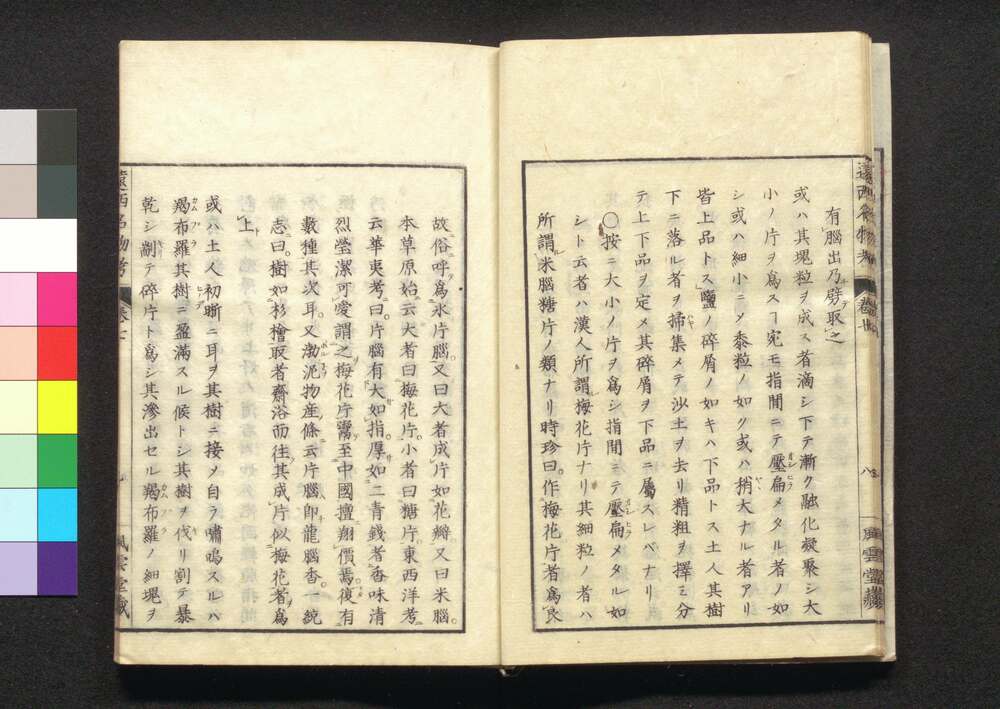 有腦出乃劈取之
或ハ其塊粒ヲ成ス者滴シ下テ漸ク融化凝聚シ大
小ノ片ヲ爲スヿ宛モ指間ニテ壓扁メタル者ノ如
シ或ハ細小ニメ黍粒ノ如ク或ハ稍大ナル者アリ
皆上品トス鹽ノ碎屑ノ如キハ下品トス土人其樹
下ニ落ル者ヲ掃集メテ沙土ヲ去リ精粗ヲ擇ミ分
テ上下品ヲ定メ其碎屑ヲ下品ニ屬スレバナリ
〇按ニ大小ノ片ヲ爲シ指間ニテ壓扁メタル如
シト云者ハ漢人所謂梅花片ナリ其細粒ノ者ハ
所謂米腦糖片ノ類ナリ時珍曰。作梅花片者爲良
故俗呼爲氷片腦。又曰大者成片如花瓣又曰米腦。
本草原始云大者曰梅花片。小者曰糖片。東西洋考
云華夷考曰片腦有大如指厚如二青錢者香味清
烈瑩潔可愛謂之梅花片鬻至中國擅翔價焉復有
數種其次耳。又渤泥物産條云片腦即龍腦香。一統
志曰。樹如杉檜取者齋浴而往其成片似梅花者爲
上
或ハ土人初晰ニ耳ヲ其樹ニ接メ自ラ嘯鳴スルハ
羯布羅其樹ニ盈滿スル候トシ其樹ヲ伐リ割テ暴
乾シ劀テ碎片ト爲シ其滲出セル羯布羅ノ細塊ヲ
遠西名物考